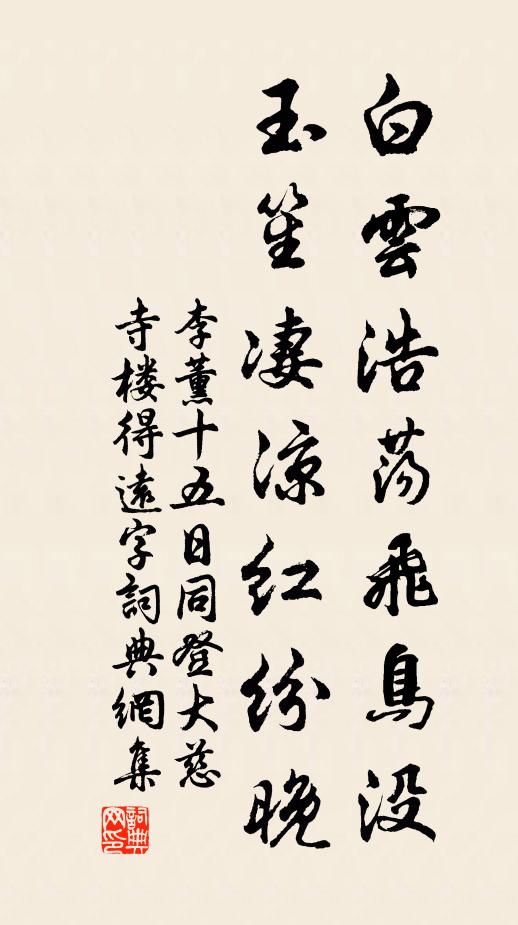 白雲浩蕩飛鳥没
玉笙凄凉紅紛晚
李薰十五日同登大慈
寺楼得遠字詞典網集
詞典
网印